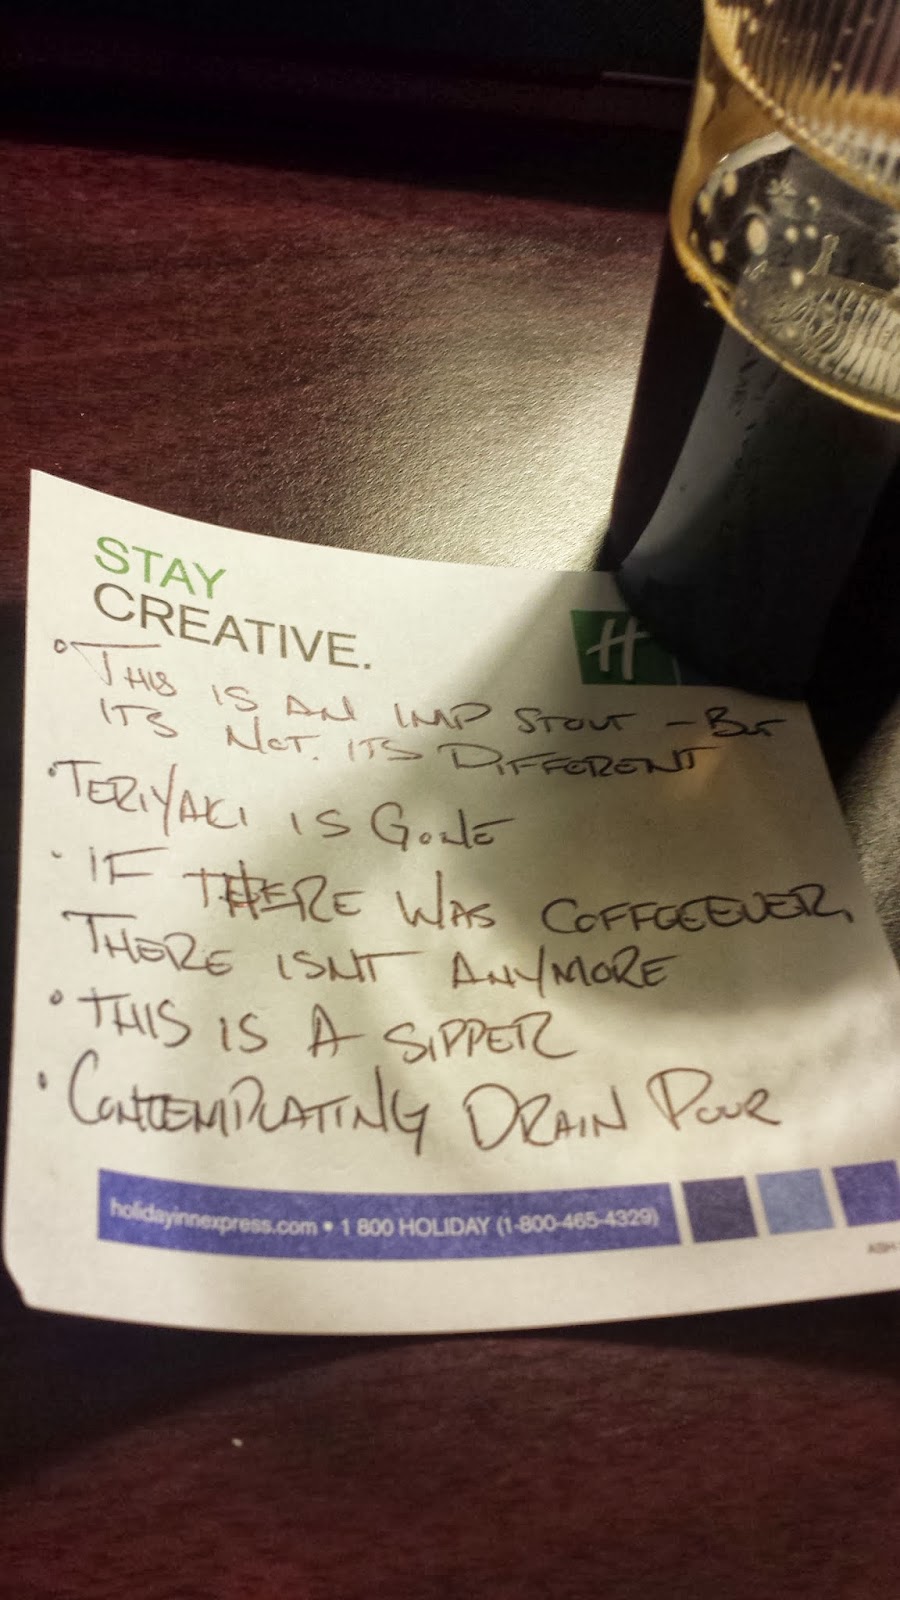 STAY
CREATIVE.
H
• THIS IS AN IMP STOUT - BUT
ITS NOT. ITS DIFFERENT
• TERIYAKI IS GONE
• IF THERE WAS COFFEEEVER,
THERE ISNT ANYMORE
• THIS IS A SIPPER
• CONTEMPLATING DRAIN POUR
holidayinnexpress.com • 1 800 HOLIDAY (1-800-465-4329)
ASH